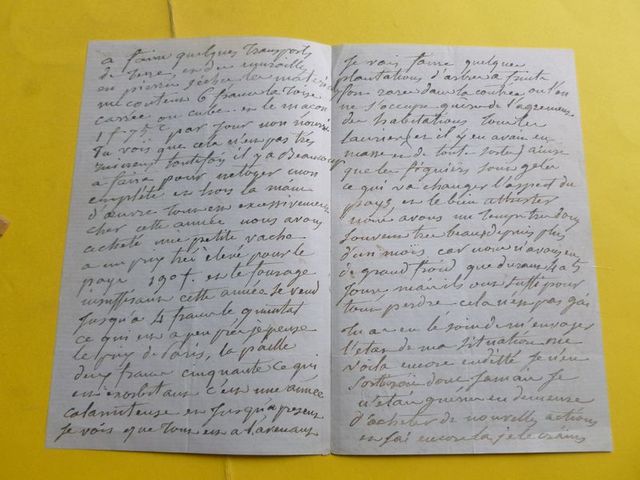 a faire quelques transports
de terre, en de murailles
en pierre sèche la
me coutent 6 francs la toise
carrée ou cube et le maçon
1f 75c par jour non nourri
tu vois que cela n'est pas très
toutefois il y a beaucoup
a faire pour nétoyer mon
emplète en bois la main
d'œuvre tout est excessivement
cher cette année nous avons
acheté une petite vache
a un prix très élevé pour le
pays 190f. et le fourage
insuffisant cette année se vend
jusqu'a 4 francs le quintal
ce qui est a peu près je pense
le prix de Paris, la paille
deux francs cinquante ce qui
est exorbitant c'est une année
calamiteuse et jusqu'a present
Je vois que tout est a l'avenant
Je vais faire quelques
plantations d'arbres a fruits
fort rares dans la contrée où l'on
ne s'occupe guère de l'agrément
des habitations tous les
lauriers (et il y en avait en
masse et de toute sorte) ainsi
que les figuiers sont gelés
ce qui va changer l'aspect du
pays, et le bien attrister
nous avons un temps très doux
souvent très beau depuis plus
d'un mois car nous n'avons eu
de grand froid que durant 4 a 5
jours mais ils ont suffi pour
tout perdre cela n'est pas gai
Tu as eu le soin de m'envoyer
l'état de ma situation me
voila encore endetté je n'en
sortirai donc jamais je
n'étais guère en demeure
d'acheter de nouvelles actions
en fai encore la je le crains